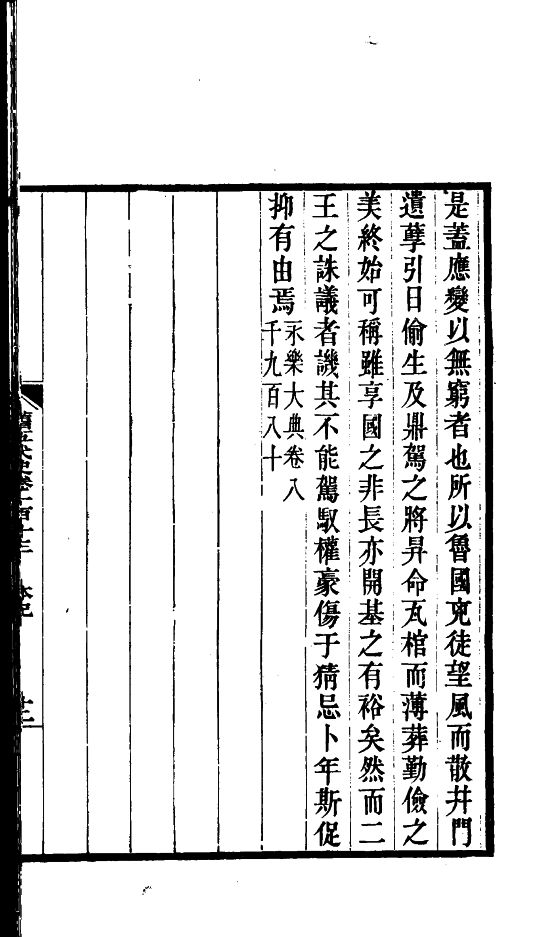 是蓋應變以無窮者也所以魯國兇徒望風而散井門
遺孽引日偷生及鼎駕之將昇命瓦棺而薄葬勤儉之
美終始可稱雖享國之非長亦開基之有裕矣然而二
王之誅議者譏其不能駕馭權豪傷于猜忌卜年斯促
抑有由焉
永樂大典卷八
千九百八十
舊五代史卷一百十三 本紀